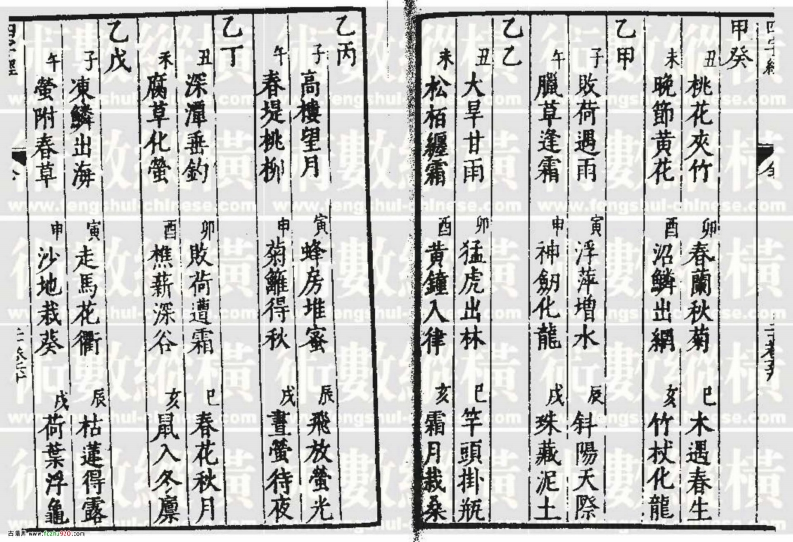 甲癸
丑 桃花夾竹 卯 春蘭秋菊 巳 木遇春生
未 晚節黃花 酉 沼鱗出網 亥 竹杖化龍
乙甲
子 敗荷遇雨 寅 浮萍增水 辰 斜陽天際
午 臘草逢霜 申 神劔化龍 戌 珠藏泥土
乙乙
丑 大旱甘雨 卯 猛虎出林 巳 竿頭掛瓶
未 松栢纏霜 酉 黃鐘入律 亥 霜月栽桑
乙丙
子 高樓望月 寅 蜂房堆蜜 辰 飛放螢光
午 春堤桃柳 申 菊籬得秋 戌 晝螢待夜
乙丁
丑 深潭垂釣 卯 敗荷遭霜 巳 春花秋月
未 腐草化螢 酉 樵薪深谷 亥 鼠入冬廪
乙戊
子 凍鱗出海 寅 走馬花衢 辰 枯蓮得露
午 螢附春草 申 沙地栽葵 戌 荷葉浮龜
術數縱橫
www.fengshui-chinese.com